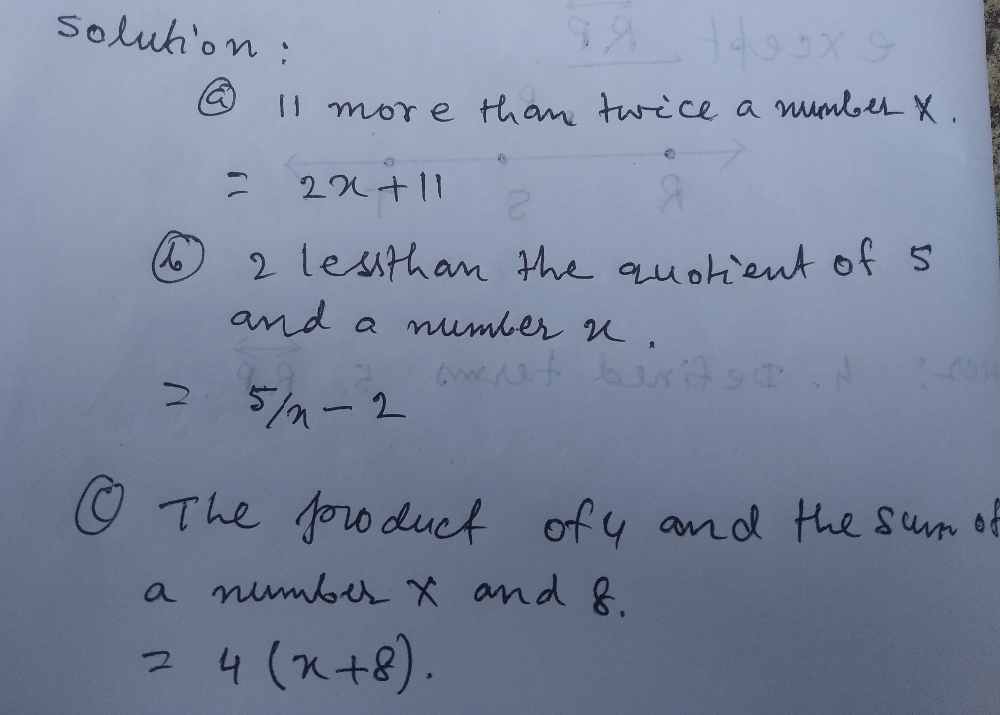 Solution :
(a) 11 more than twice a number x.
= 2x+11
(b) 2 lessthan the quotient of 5
and a number x.
= 5/x - 2
(c) The product of 4 and the sum of
a number x and 8.
= 4 (x+8).